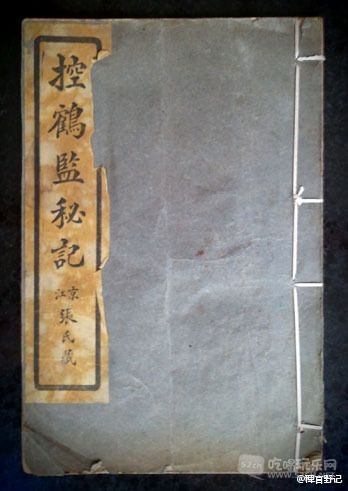 控鶴監秘記
京江
張氏藏
吃喝玩乐网
@稗官野记